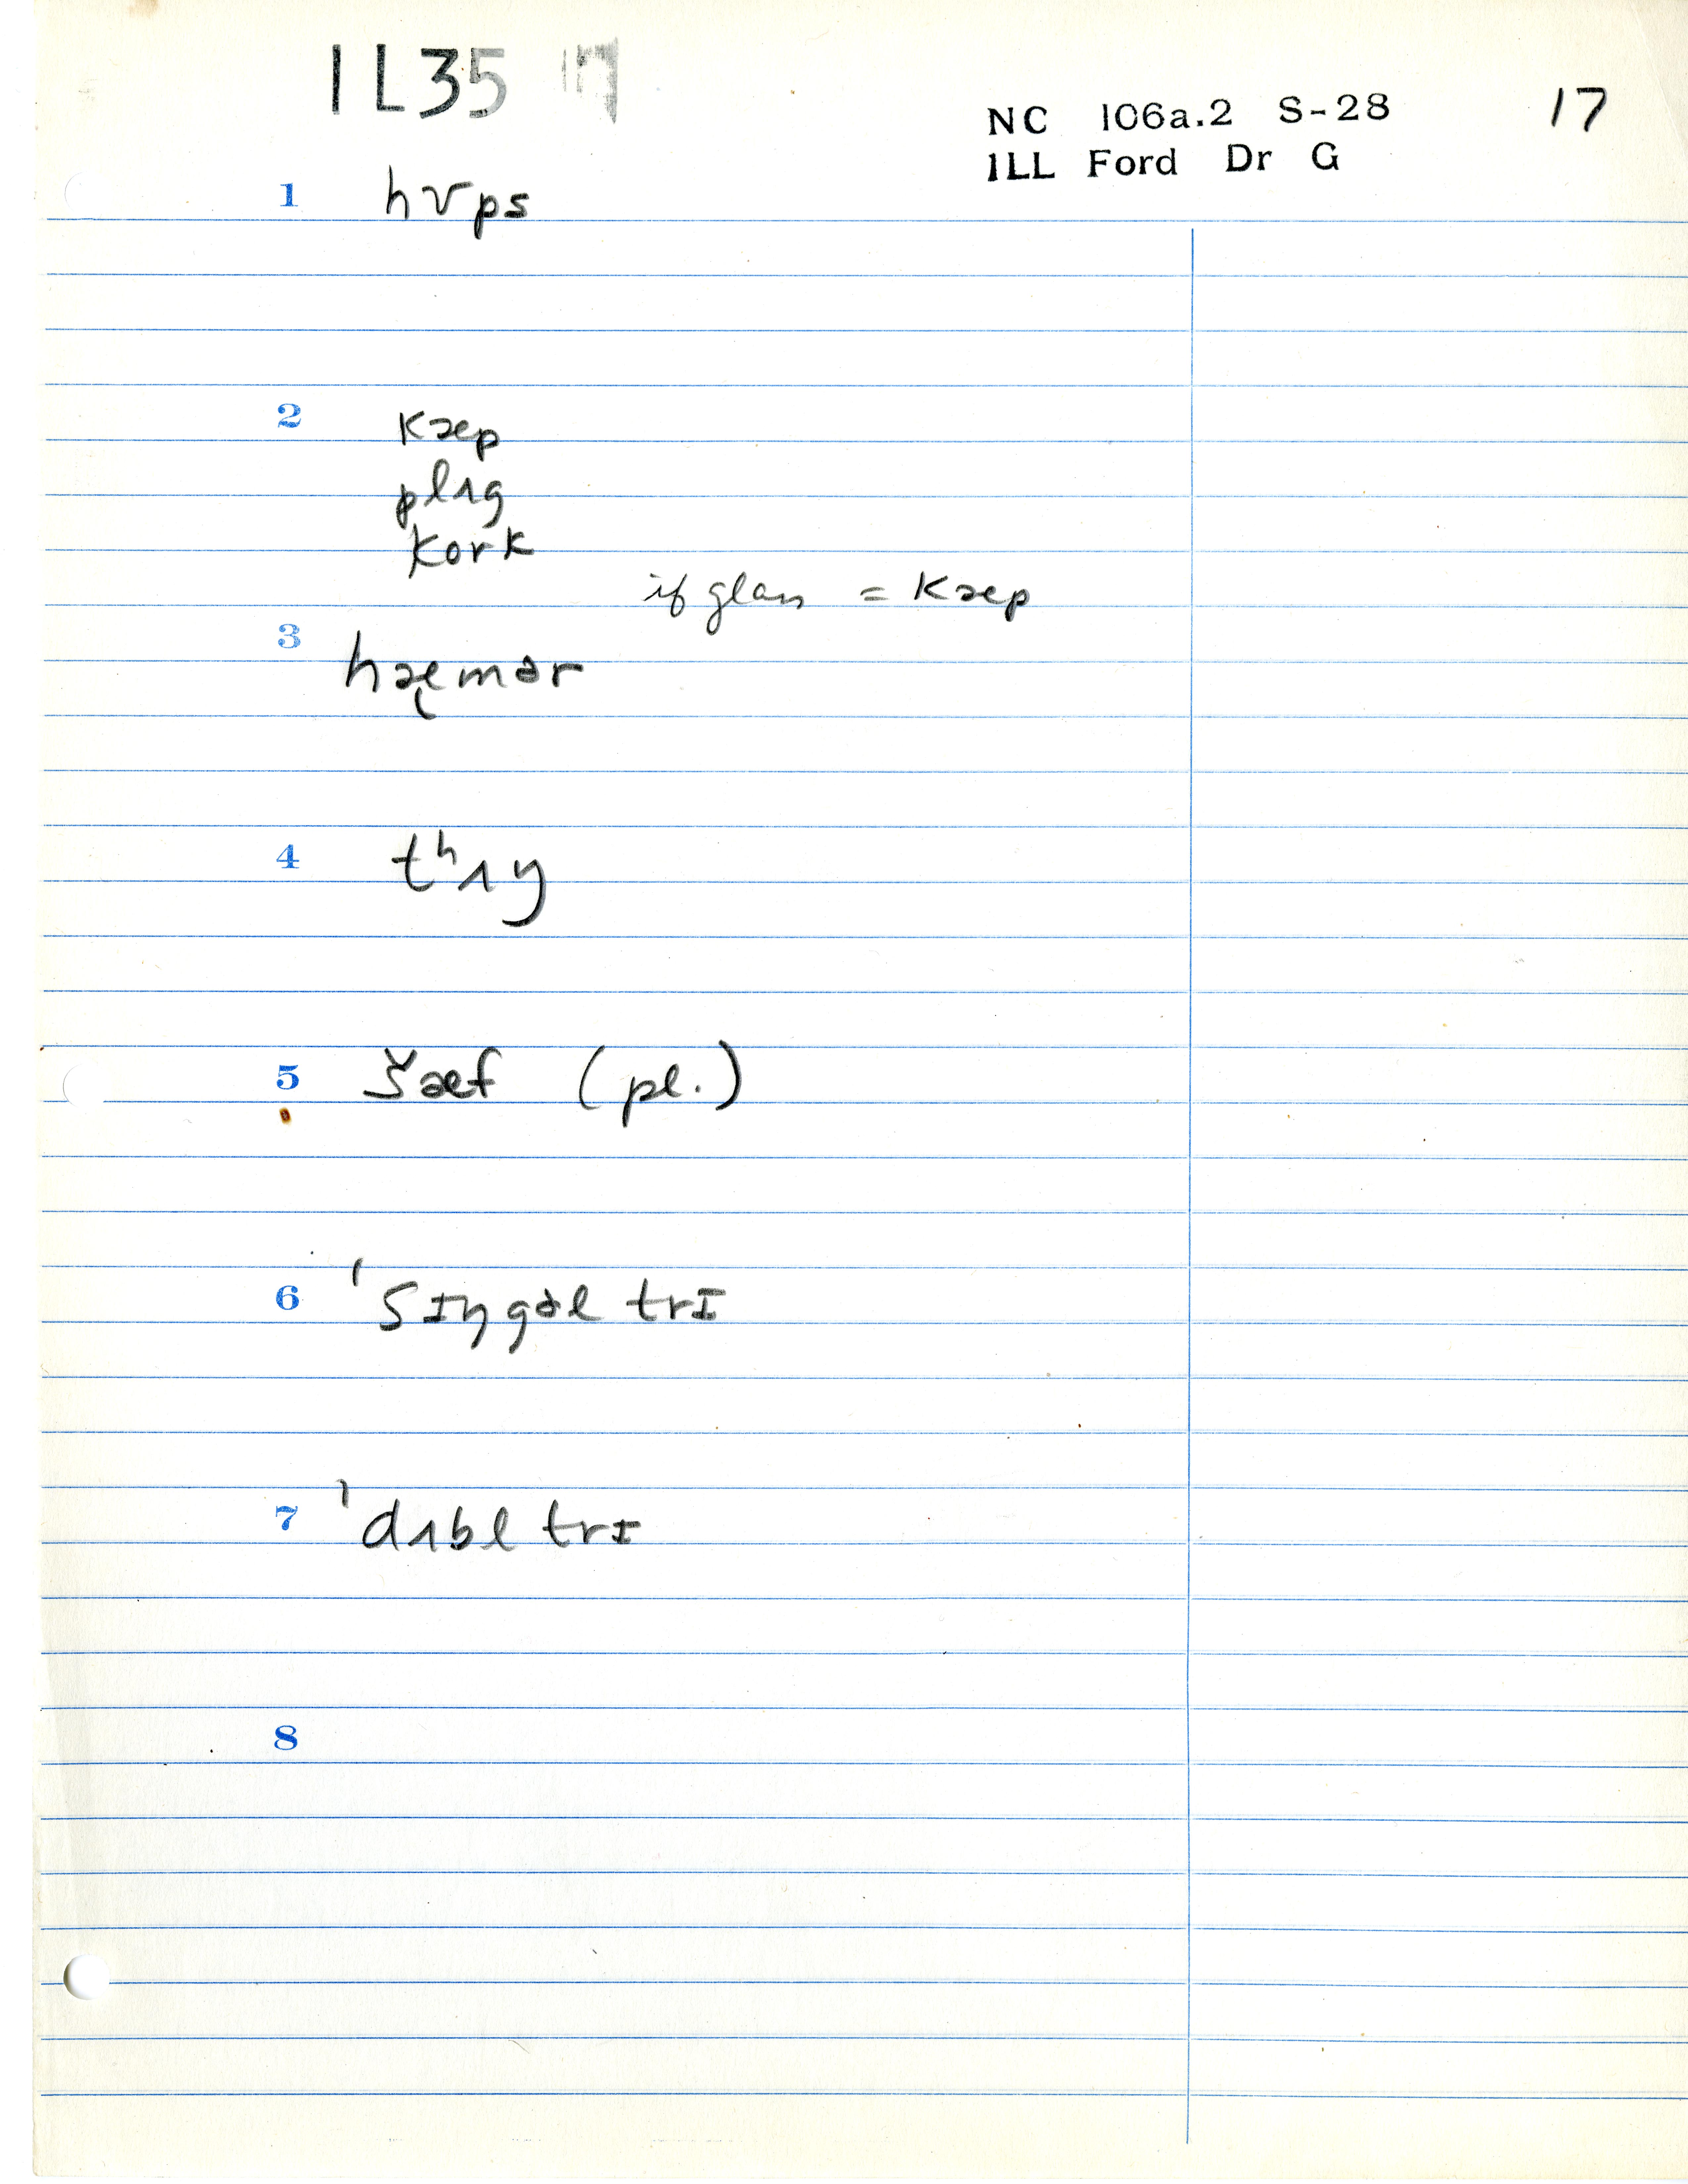 IL35 17
NC 106a.2 S-28 17
ILL Ford Dr G
1 hʊps
2 kæp
plʌg
kork
if glass = kæp
3 hæ̨mər
4 tʰʌŋ
5 šæf (pl.)
6 'sɪŋgəl trɪ
7 'dʌbl trɪ
8